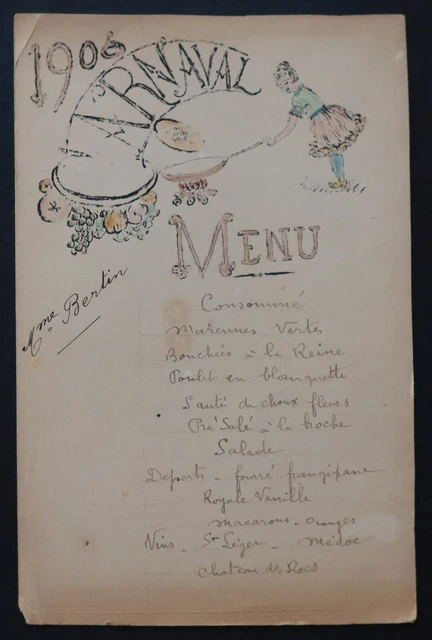 1906
CARNAVAL
MENU
Mme Bertin
Consommé
Marennes Vertes
Bouchées à la Reine
Poulet en blanquette
Sauté de choux fleurs
Pré Salé à la broche
Salade
Desserts - fourré frangipane
Royale Vanille
Macarons - Oranges
Vins - St Léger - Médoc
Chateau des Rocs